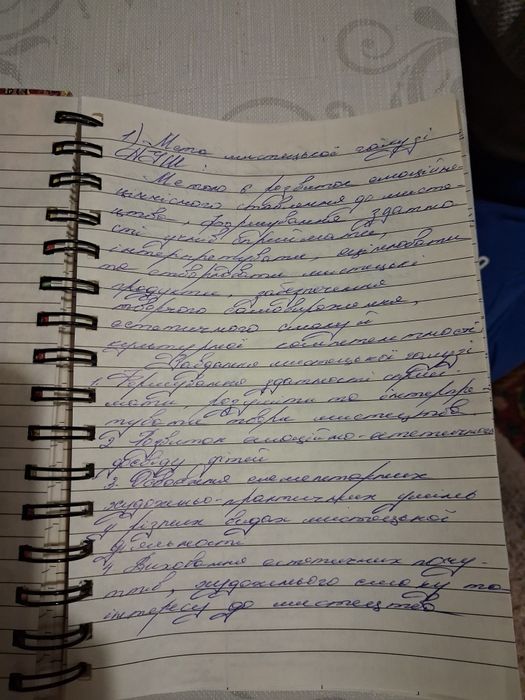 1) Мета мистецької галузі
НУШ.
Метою є розвиток емоційно-
ціннісного ставлення до мисте-
цтва, формування здатно
сті учнів сприймати,
інтерпретувати, оцінювати
та створювати мистецькі
продукти, забезпечення
творчого самовираження,
естетичного смаку й
культурної компетентності.
Завдання мистецької галузі
1. Формування здатності сприй
мати, розуміти та інтерпре-
тувати твори мистецтва
2 Розвиток емоційно-естетичного
досвіду дітей
3. Оволодіння елементарних
художньо-практичних умінь
у різних видах мистецької
діяльності
4 Виховання естетичних почу-
ттів, художнього смаку та
інтересу до мистецтва